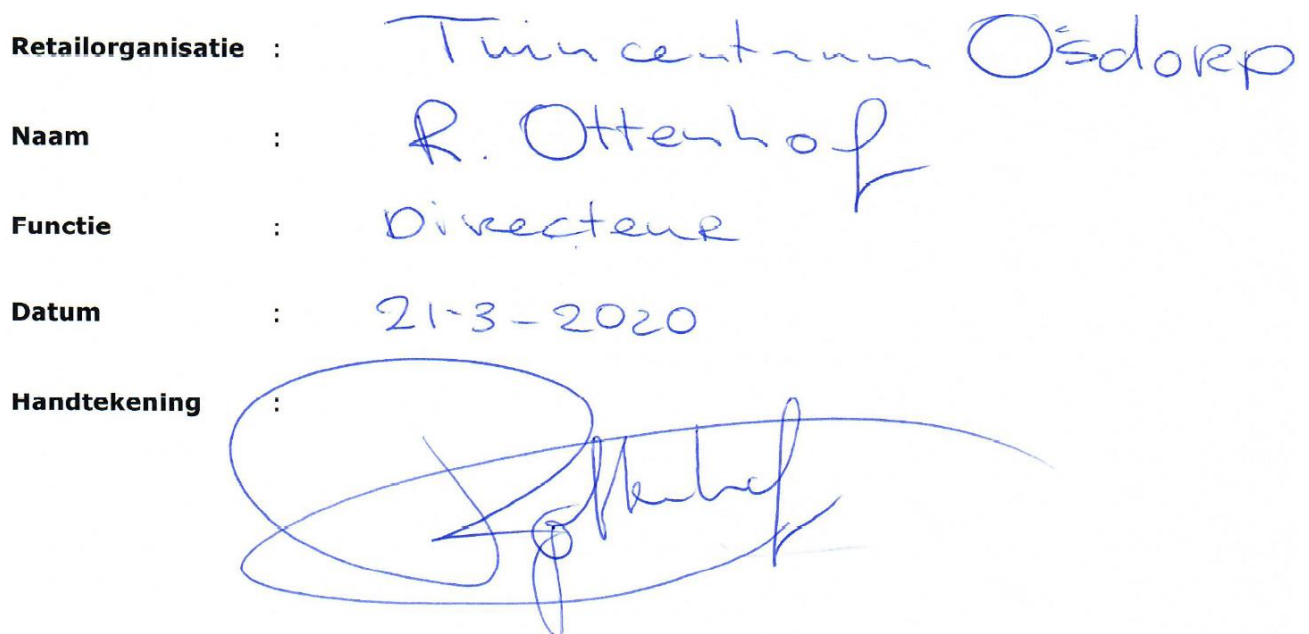 Retailorganisatie : Tuincentrum Osdorp
Naam : R. Ottenhof
Functie : Directeur
Datum : 21-3-2020
Handtekening :
ROttenhof